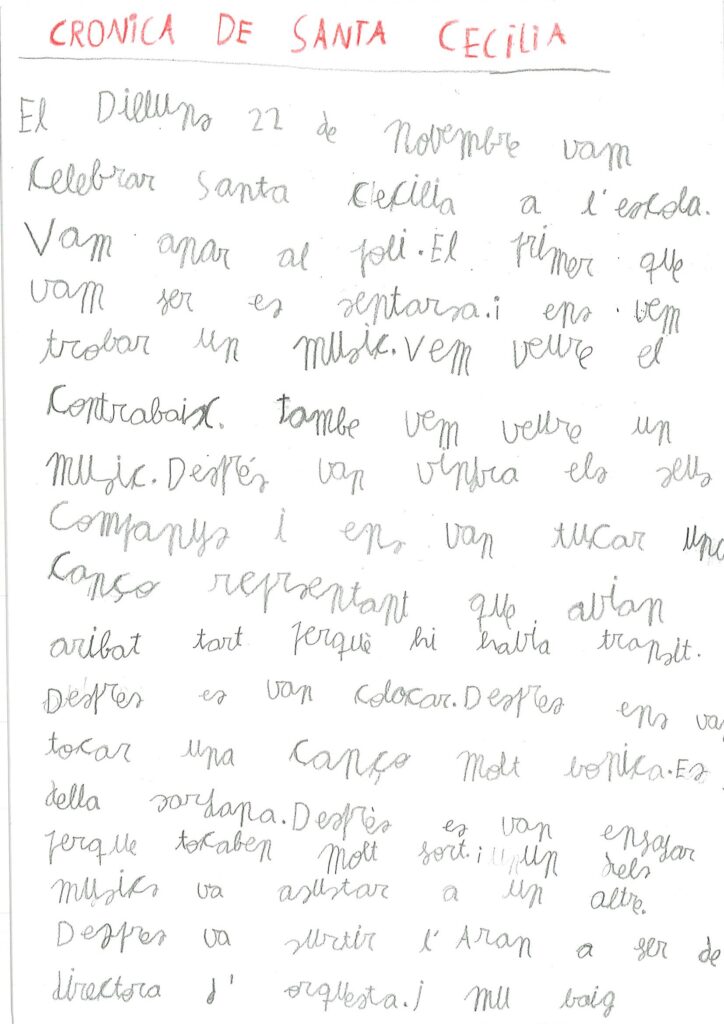 CRONICA DE SANTA CECILIA
El Dilluns 22 de novembre vam
Celebrar Santa Cecilia a l'escola.
Vam anar al poli. El primer que
vam fer es sentarsa. i ens vem
trobar un music. Vem veure el
Contrabaix. també vem veure un
music. Després van vindra els seus
Companys i ens van tucar una
canço reprsentant que avian
aribat tart perquè hi havia transit.
Després es van colocar. Despres ens va
tocar una canço molt bonica. Es
della sardana. Desprès es van ensajar
perque tokaben molt fort. i un dels
musics va asustar a un altre.
Despres va surtir l'Aran a ser de
directora d'orquesta. i mu baig